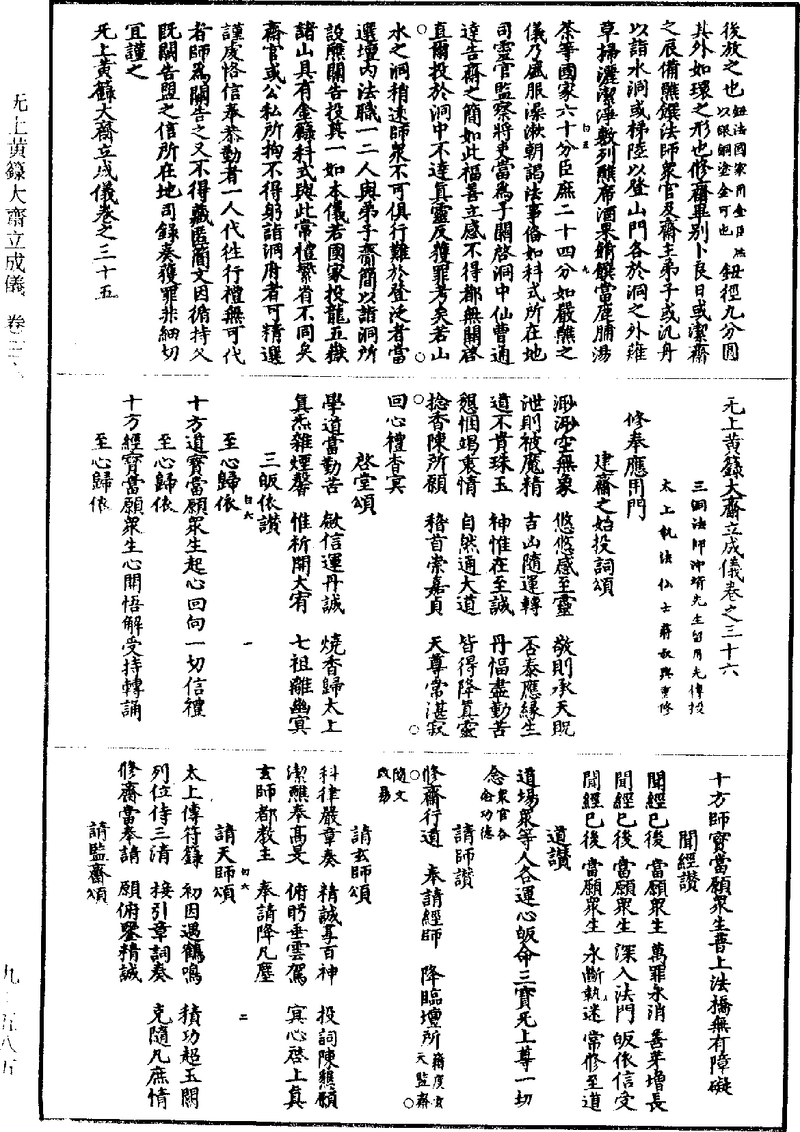 後放之也鈕法國家用金臣庶以銀銅塗金可也鈕徑九分圓
其外如環之形也修齋畢別卜良日或潔齋
之辰備醮饌法師眾官及齋主弟子或汎舟
以詣水洞或梯陸以登山門各於洞之外薙
草掃灑潔淨敷列醮席酒果餚饌當鹿脯湯
茶等國家六十分臣庶二十四分如嚴醮之
儀乃盛服澡漱朝謁法事俻如科式所在地
司靈官監察將吏當為子關啓洞中仙曹通
達告齋之簡如此福善立感不得都無關啓
直爾投於洞中不達真靈反獲罪考矣若山
水之洞稍遠師眾不可俱行難於登泛者當
選壇內法職一二人與弟子賫簡以詣洞所
設醮關告投其一如本儀若國家投龍五嶽
諸山具有金籙科式與此常禮繁省不同矣
齋官或公私所拘不得躬詣洞府者可精選
謹虔恪信奉恭勤者一人代往行禮無可代
者師為關告之又不得藏匿簡文因循持久
既關告盟之信所在地司錄奏獲罪非細切
宜謹之
无上黃籙大齋立成儀卷之三十五
无上黃籙大齋立成儀卷之三十六
三洞法師沖靖先生留用光傳授
太上執法仙士蔣叔輿重修
修奉應用門
建齋之始投詞頌
渺渺空無象 悠悠感至靈 敬則承天貺
泄則被魔精 吉凶隨運轉 否泰應緣生
道不貴珠玉 神惟在至誠 丹愊盡勤苦
懇悃竭衷情 自然通大道 皆得降真靈
捻香陳所願 稽首崇嘉貞 天尊常湛寂
回心禮杳冥
啓堂頌
學道當勤苦 歛信運丹誠 燒香歸太上
真炁雜煙馨 惟祈開大宥 七祖離幽冥
三皈依讚
至心歸依
十方道寶當願眾生起心回向一切信禮
至心歸依
十方經寶當願眾生心開悟解受持轉誦
至心歸依
十方師寶當願眾生普上法橋無有障礙
聞經讚
聞經已後 當願眾生 萬罪永消 善芽增長
聞經已後 當願眾生 深入法門 皈依信受
聞經已後 當願眾生 永斷執迷 常修至道
道讚
道場眾等人各運心皈命三寶无上尊一切
念眾官各念功德
請師讚
修齋行道 奉請經師 降臨壇所籍度玄天監齋
隨文改易
請玄師頌
科律嚴章奏 精誠享百神 投詞陳懇願
潔醮奉高旻 俯盻垂雲駕 冥心啓上真
玄師都教主 奉請降凡塵
請天師頌
太上傳符籙 初因遇鶴鳴 積功超玉闕
列位侍三清 接引章詞奏 克隨凡庶情
修齋當奉請 願俯鑒精誠
請監齋頌
无上黃籙大齋立成儀 卷三